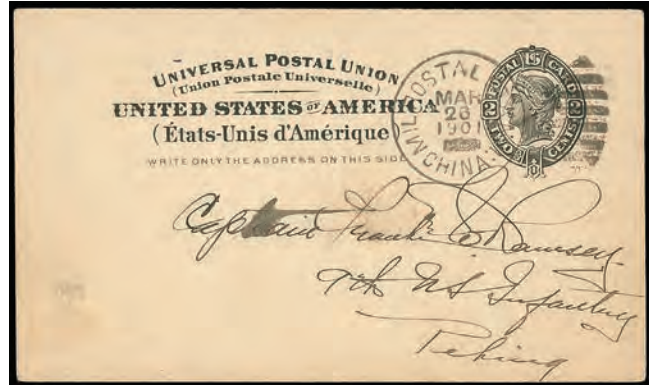 UNIVERSAL POSTAL UNION
(Union Postale Universelle)
UNITED STATES OF AMERICA
(États-Unis d'Amérique)
WRITE ONLY THE ADDRESS ON THIS SIDE
MIL. POSTAL
MAR
26
1901
CHINA.
POSTAL US CARD
2 2
TWO CENTS
Captain Frank Ramsey
9th US Infantry
Peking